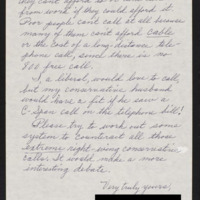 them even if they could afford it.
Poor people can't call at all because
many of them can't afford cable
or the cost of a long-distance tele-
phone call, since there is no
800 free call.
I, a liberal, would love to call,
but my conservative husband
would have a fit if he saw a
C-Span call on the telephone bill!
Please try to work out some
system to counteract all those
extreme right-wing conservative
calls. It would make a more
interesting debate.
Very truly yours,